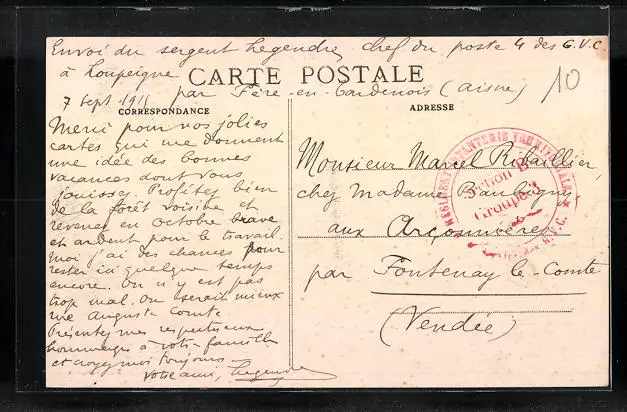 Envoi du sergent Legendre, chef du poste 4 des G.V.C.
à Loupeigne
CARTE POSTALE
par Fère-en-Tardenois (Aisne)
10
7 Sept 1915
CORRESPONDANCE
ADRESSE
Merci pour vos jolies
cartes qui me donnent
une idée des bonnes
vacances dont vous
jouissez. Profitez bien
de la forêt voisine et
revenez en octobre brave
et ardent pour le travail.
Moi j'ai des chances pour
rester ici quelque temps
encore. On n'y est pas
trop mal. On serait mieux
rue Auguste Comte
Présentez mes respectueux
hommages à votre famille
et croyez moi toujours
votre ami, Legendre
Monsieur Marcel Ribaillier
chez Madame
aux Arçonnières
par Fontenay le-Comte
(Vendée)
REGIMENT INFANTERIE TERRITORIALE
Section B
Groupe 3
G.V.C.